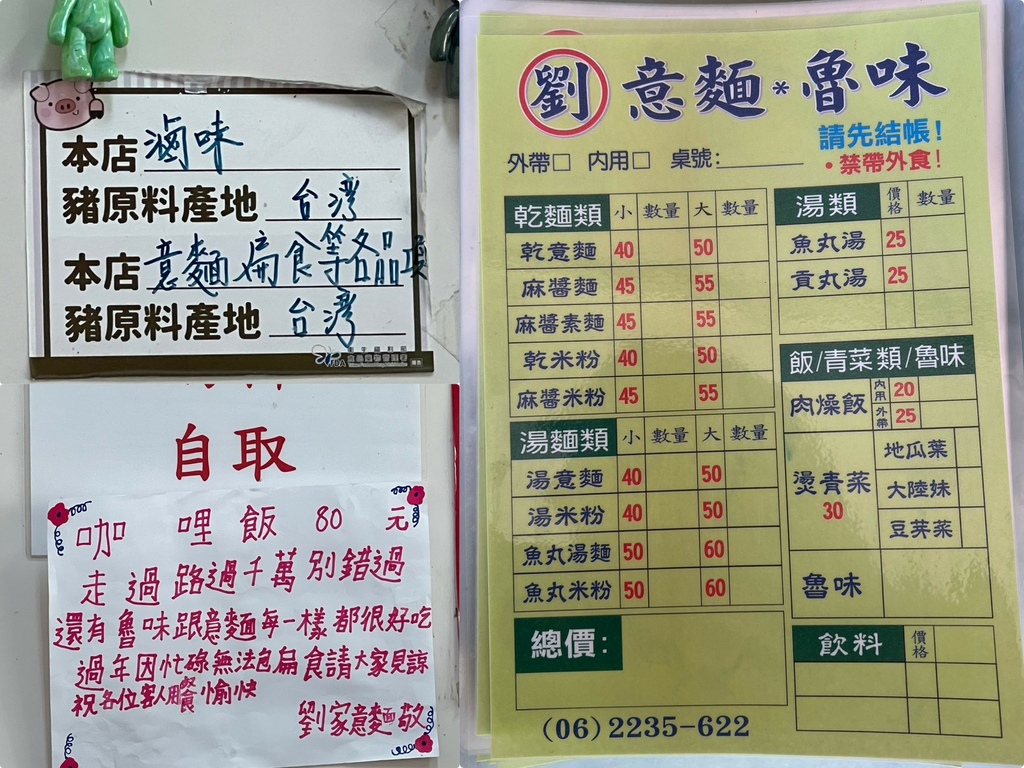 本店滷味
豬原料產地 台灣
本店意麵扁食等各品項
豬原料產地 台灣
TDA
自取
咖哩飯 80 元
走過路過千萬別錯過
還有魯味跟意麵每一樣都很好吃
過年因忙碌無法包扁食請大家見諒
祝各位客人用餐愉快
劉家意麵敬
劉 意麵*魯味
請先結帳!
外帶□ 内用□ 桌號:
•禁帶外食!
乾麵類 小 數量 大 數量
乾意麵 40 50
麻醬麵 45 55
麻醬素麵 45 55
乾米粉 40 50
麻醬米粉 45 55
湯麵類 小 數量 大 數量
湯意麵 40 50
湯米粉 40 50
魚丸湯麵 50 60
魚丸米粉 50 60
總價:
湯類 價格 數量
魚丸湯 25
貢丸湯 25
飯/青菜類/魯味
肉燥飯 內用 20
外帶 25
燙青菜 30
地瓜葉
大陸妹
豆芽菜
魯味
飲料 價格
(06)2235-622